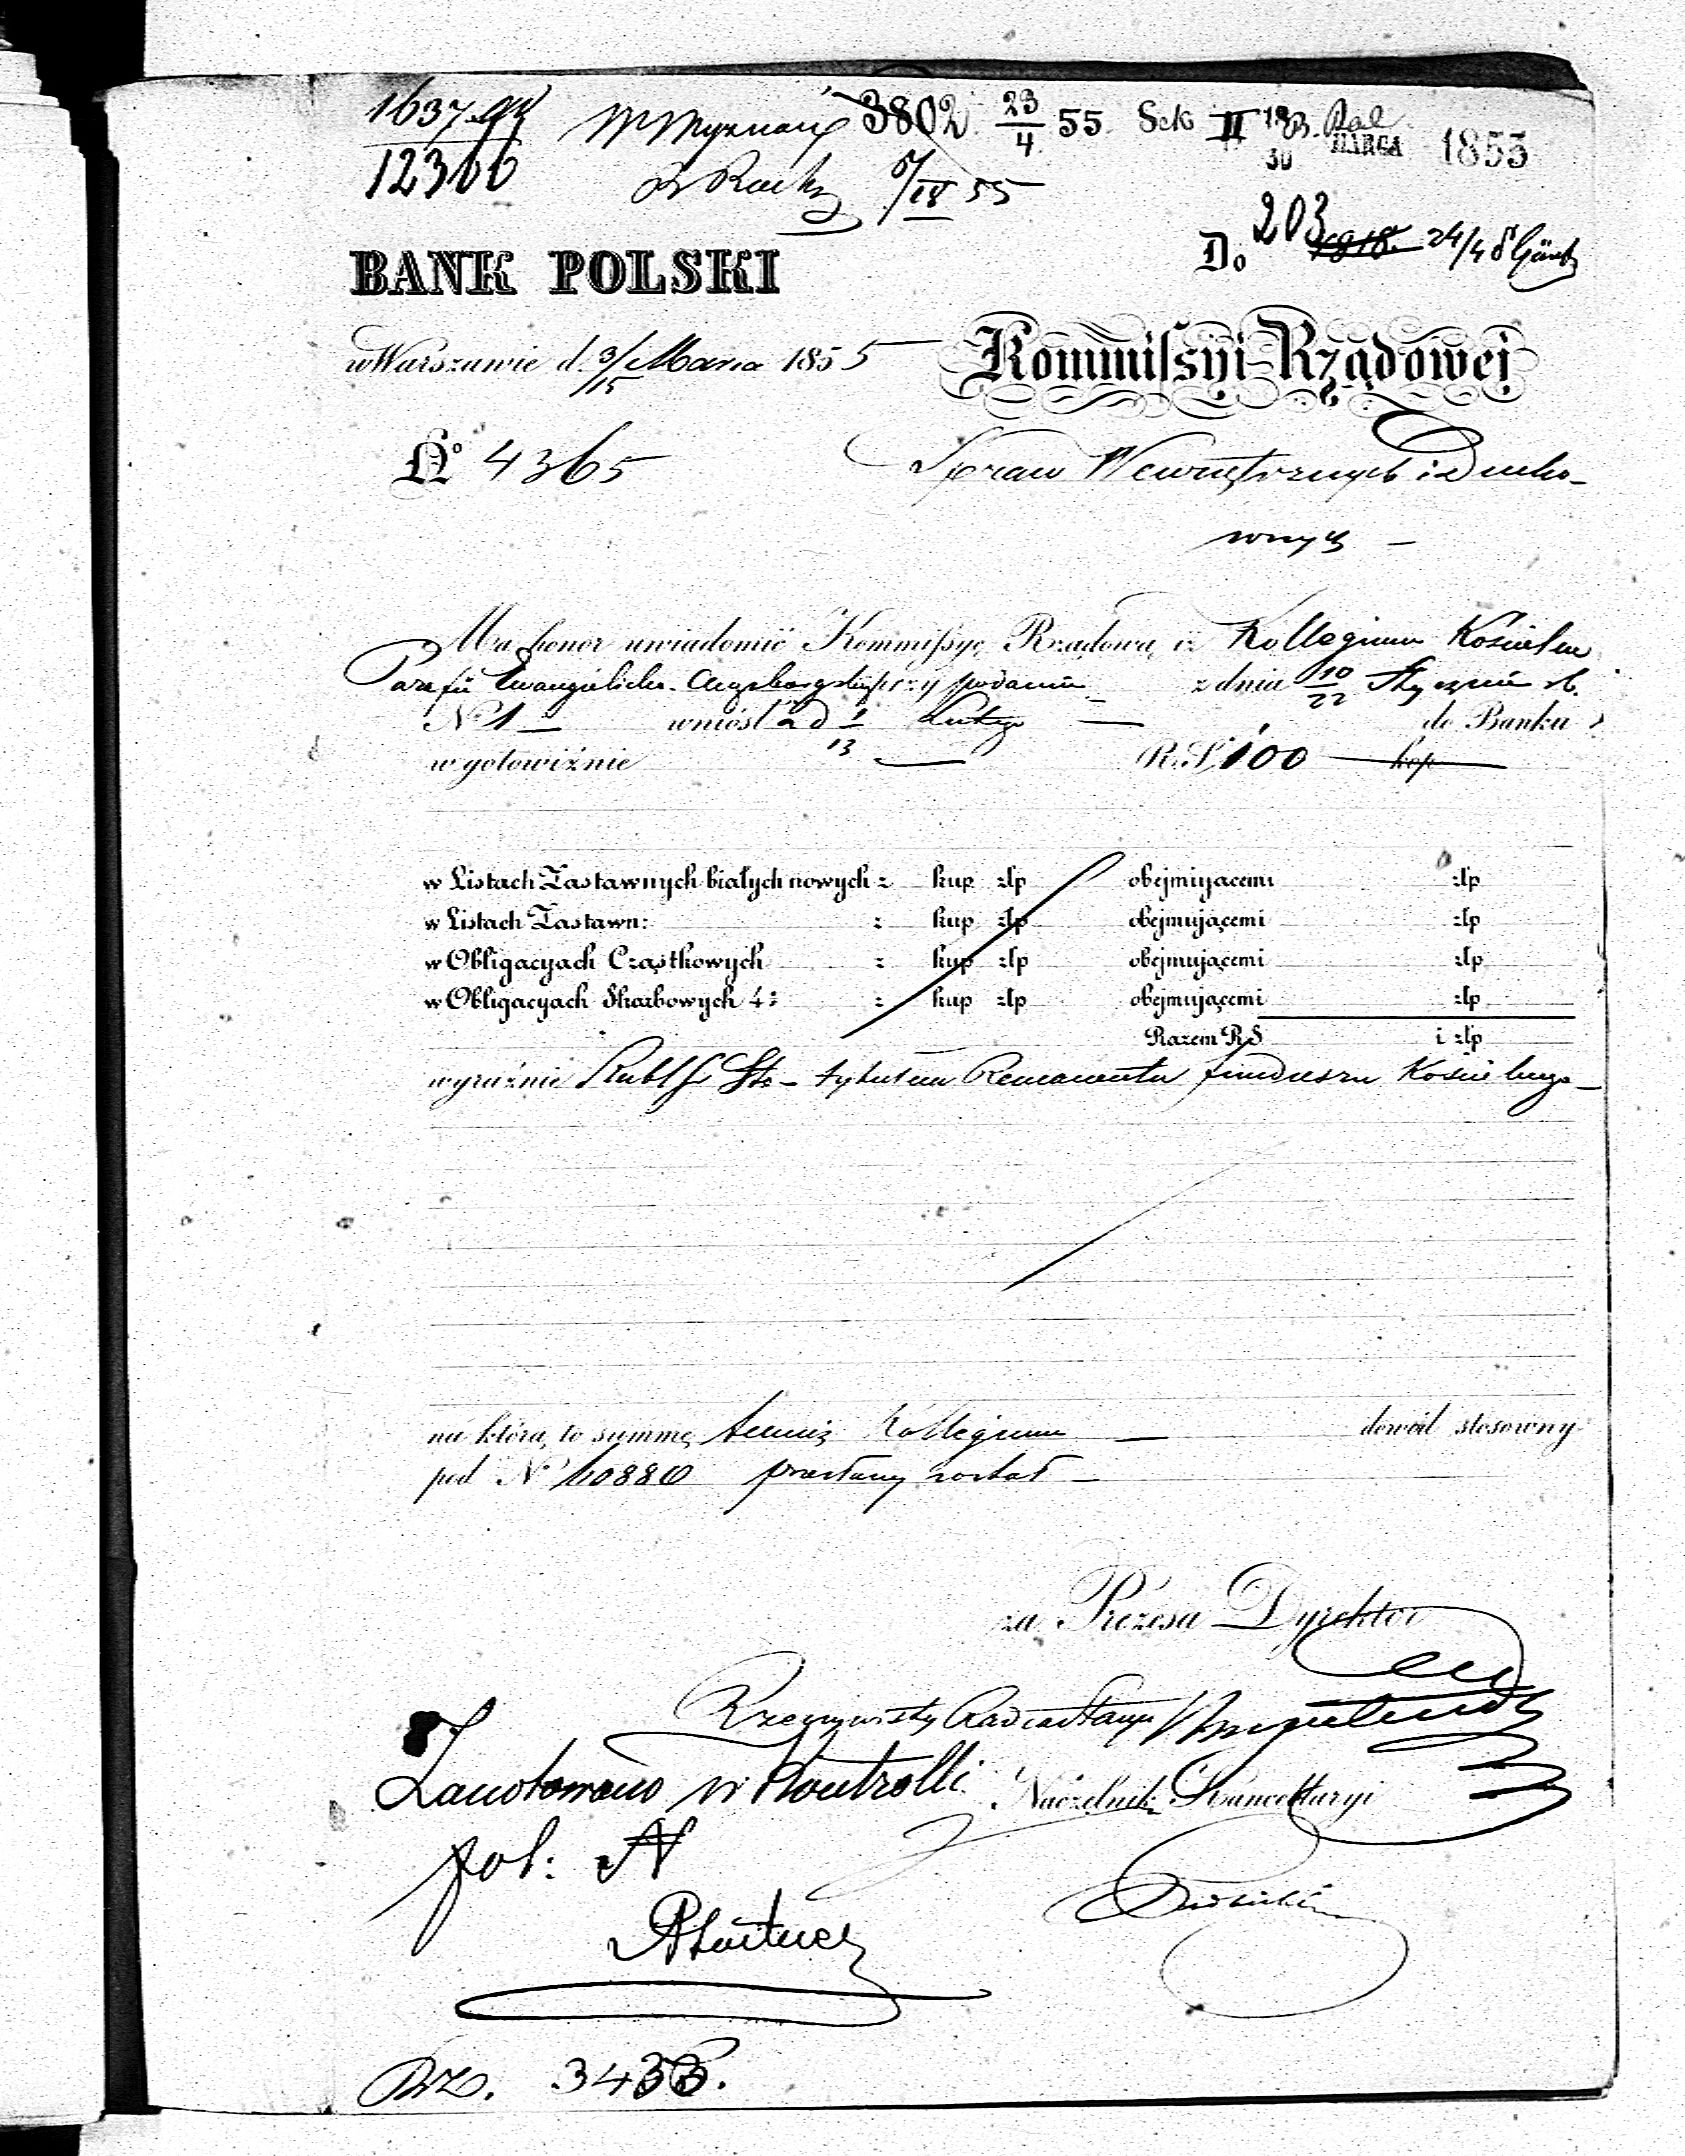 1637
12366
3802 23/4 55 Sek II 18 30 MARCA 1855
/IV 55
Do 203 1818 24/4
BANK POLSKI
w Warszawie d. 3/15 Marca 1855
Kommissyi Rządowej
No 4365
Spraw Wewnętrznych i Ducho-
wnych —
Ma honor uwiadomić Kommissyę Rządową iż Kollegium Kościelne
Parafii Ewangielicko-Augsburgskiej przy podaniu z dnia 10/22 Stycznia rb.
No 1 — wniósł ad 1/13 Lutego — do Banku
w gotowiźnie — R. S. 100 — kop
w Listach Zastawnych białych nowych z kup złp obejmującemi złp
w Listach Zastawn: z kup złp obejmującemi złp
w Obligacyach Cząstkowych z kup złp obejmującemi złp
w Obligacyach Skarbowych 4: z kup złp obejmującemi złp
Razem RS i złp
wyraźnie Rubl Sr Sto — tytułem Remanentu funduszu Kościelnego —
na którą to summę temuż Kollegium — dowód stosowny
pod No 10880 przesłany został —
za Prezesa Dyrektor
Rzeczywisty Radca Stanu
Zanotowano w Kontrolli
Naczelnik Kancellaryi
fol: N
Drz. 3433.